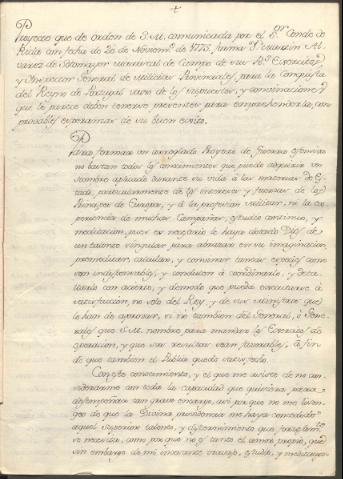 Proyecto que de orden de S.M. comunicada por el Sr. Conde de
Ricla con fecha de 20 de Noviembre de 1775, forma Dn. Martin Al
varez de Sotomayor Mariscal de Campo de sus Rs. Exercitos
y Inspector General de Milicias Provinciales, para la Conquista
del Reyno de Portugal vajo de los supuestos, y convinaciones
que le parece deben tenerse presentes para emprenderla, con
provables esperanzas de un buen exito.
Para formar un arreglado Proyecto de Guerra ofensiva
ni bastan todos los conocimientos que puede adquirir un
hombre aplicado durante su vida á las materias de Es
tado, particularmente de los intereses y fuerzas de los
Principes de Europa, y á la profesion Militar, ni la ex
periencia de muchas Campañas, estudio continuo, y
meditacion, pues es necesario le haya dotado Dios de
un talento singular para abultar en su imaginacion,
premeditar, calcular, y convinar tantas especies como
son indispensables, y conducen á condimentarlo, y deta
llarlo con acierto, y de modo que pueda executarse á
satisfaccion, no solo del Rey, y de sus Ministros que
le han de aprovar, si no tambien del General, ó Gene
rales que S.M. nombre para mandar los Exercitos de
operacion, y que sus resultas sean favorables, á fin
de que tambien el Publico quede satisfecho.
Con este conocimiento, y el que me asiste de no con
siderarme con toda la capacidad que quisiera para
desempeñar tan grave encargo, asi por que no me lison
geo de que la Divina providencia me haya concedido
aquel superior talento, y discernimiento que
se necesita, como por que no y tanto el amor propio, que
sin embargo de mi incesante travajo, estudio, y meditacion